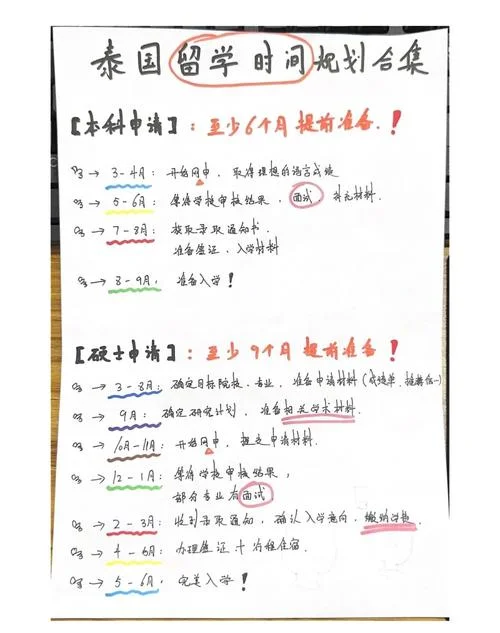 泰国留学时间规划合集
【本科申请】：至少6个月提前准备！
→ 3-4月：开始网申，取得理想的语言成绩
→ 5-6月：等待学校审核结果，面试，补充材料.
→ 7-8月：获取录取通知书.
准备签证，入学材料
→ 8-9月，准备入学！
【硕士申请】：至少9个月提前准备！
→ 3-8月：确定目标院校、专业，准备申请材料（成绩单、推荐信…）
→ 9月：确定研究计划，准备相关学术材料.
→ 10月-11月：开始网申，提交申请材料.
→ 12-1月：等待学校审核结果，
部分专业有面试.
→ 2-3月：收到录取通知，确认入学意向，缴纳学费.
→ 4-6月：办理签证+ 住宿
→ 5-6月：完美入学！